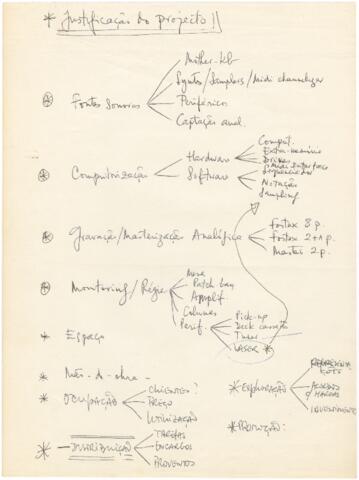 * Justificação do projecto !!
Mother-kb
Syntes/Samplers/Midi channelizer
* Fontes Sonoras
Periféricos
Captação anal.
Comput.
Extra-memória
Hardware
Drives
Midi Interface
* Computorização
Sequenciador
Software
Notação
Sampling
Fostex 8 p.
* Gravação/Masterização Analógica
Fostex 2+1 p.
Master 2 p.
Mesa
Patch bay
* Monitoring/Régie
Amplif.
Colunas
Perif.
Pick-up
Deck cassete
Tuner
* Espaço
LASER *
* Mão-d-obra -
CLIENTES?
* OCUPAÇÃO
PREÇO
UTILIZAÇÃO
* EXPLORAÇÃO
ACORDOS
C/ MARCAS
INVESTIMENTO
* PRODUÇÃO:
TAREFAS
* DISTRIBUIÇÃO
ENCARGOS
PROVENTOS